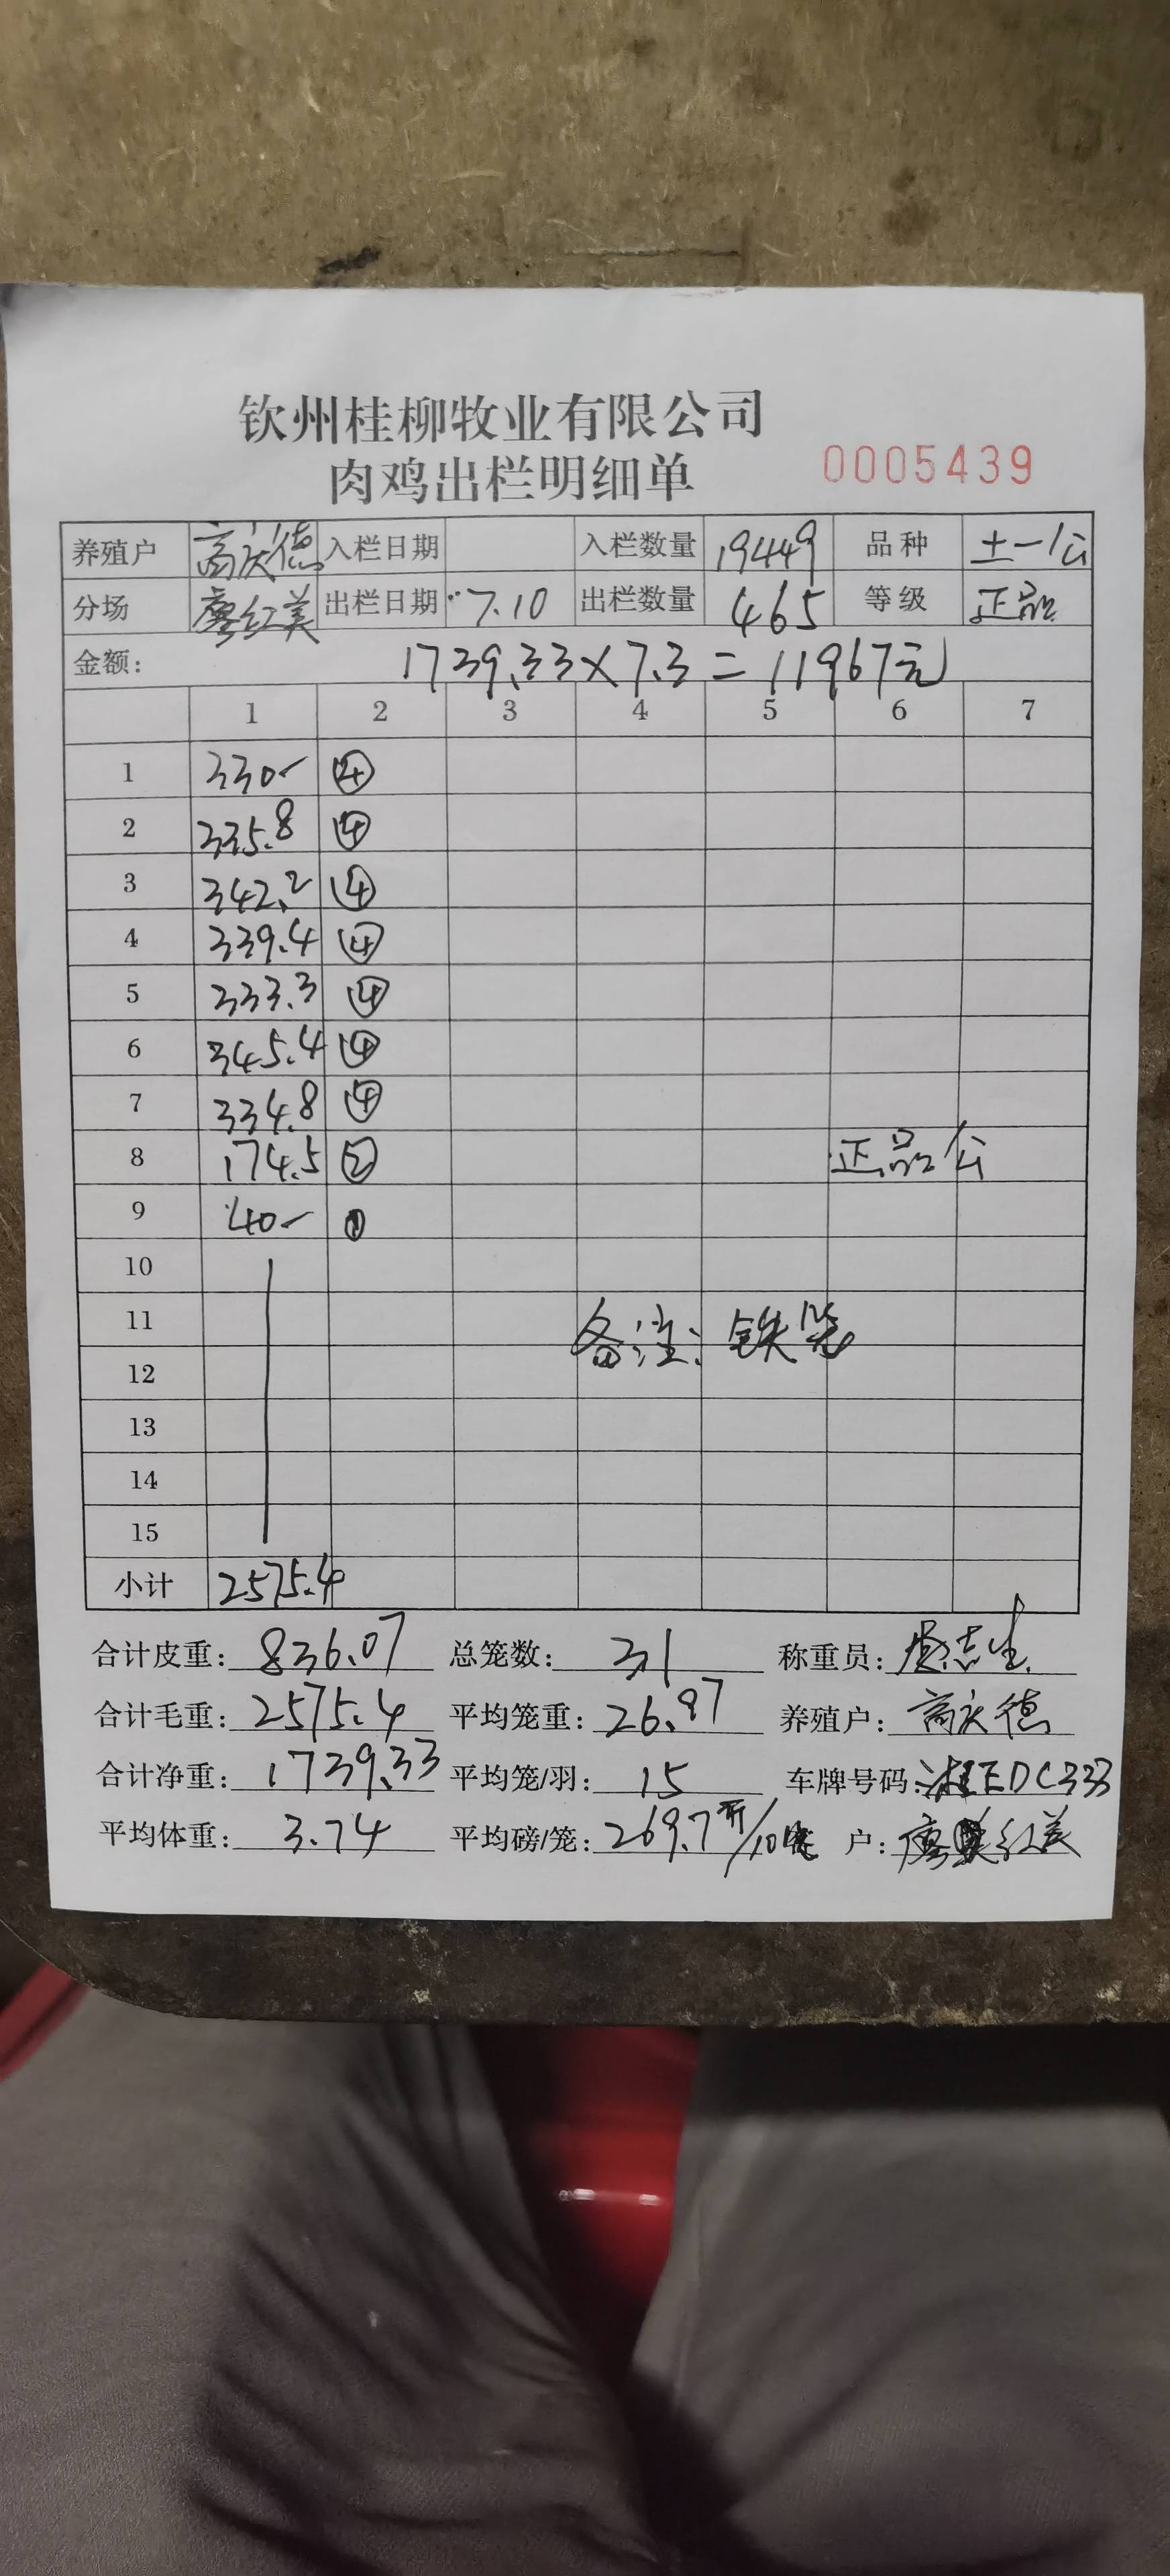 钦州桂柳牧业有限公司
肉鸡出栏明细单 0005439
养殖户 高庆德 入栏日期 入栏数量 19449 品种 土一公
分场 廖红美 出栏日期 7.10 出栏数量 465 等级 正品
金额: 1739.33×7.3=11967元
1 2 3 4 5 6 7
1 330- ④
2 335.8 ④
3 342.2 ④
4 339.4 ④
5 333.3 ④
6 345.4 ④
7 334.8 ④
8 174.5 ② 正品公
9 40- ①
10
11 备注: 铁笼
12
13
14
15
小计 2575.4
合计皮重: 836.07 总笼数: 31 称重员:
合计毛重: 2575.4 平均笼重: 26.97 养殖户: 高庆德
合计净重: 1739.33 平均笼/羽: 15 车牌号码: 湘EDC333
平均体重: 3.74 平均磅/笼: 269.7斤/10 户: 廖红美